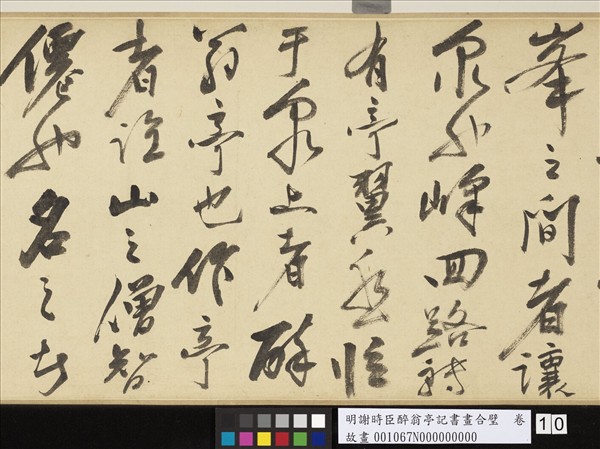 峯之間者讓
泉也峰回路轉
有亭翼然臨
于泉上者醉
翁亭也作亭
者誰山之僧智
僊也名之者
明謝時臣醉翁亭記書畫合璧 卷
故畫 001067N000000000
10